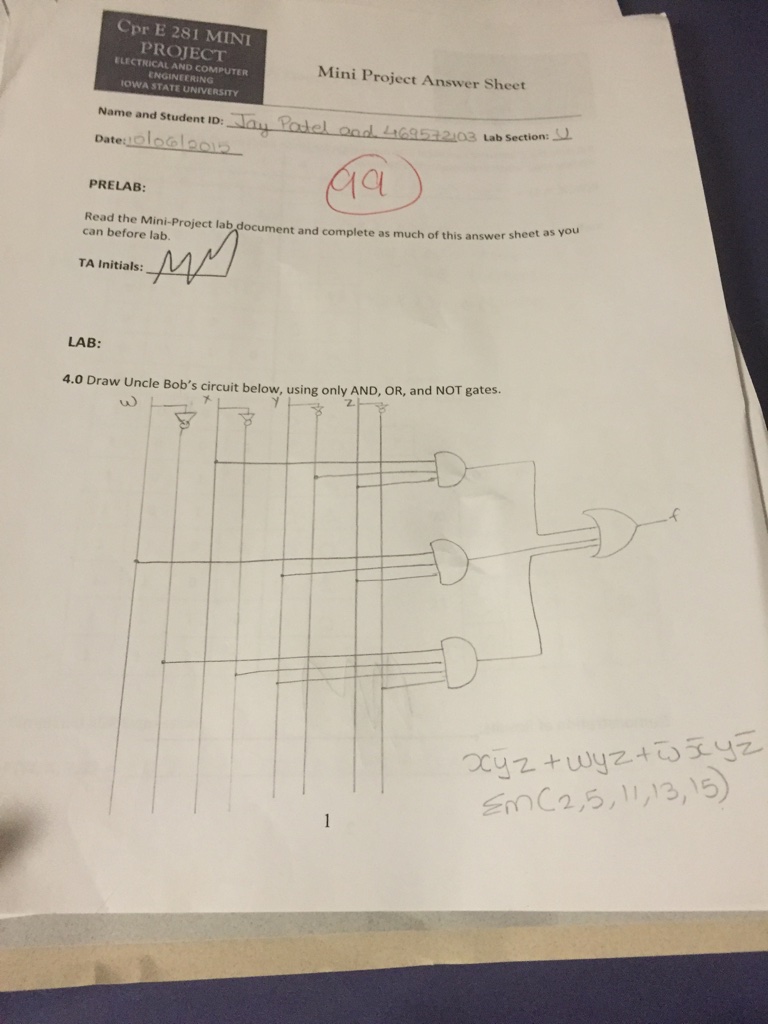 Cpr E 281 MINI
PROJECT
ELECTRICAL AND COMPUTER
ENGINEERING
IOWA STATE UNIVERSITY
Mini Project Answer Sheet
Name and Student ID: Jay Patel and 469572103 Lab Section: U
Date: 10/06/2015
99
PRELAB:
Read the Mini-Project lab document and complete as much of this answer sheet as you
can before lab.
TA Initials:
LAB:
4.0 Draw Uncle Bob's circuit below, using only AND, OR, and NOT gates.
w x y z
f
xy̅z + wyz + w̅x̅yz̅
Σm(2,5,11,13,15)
1